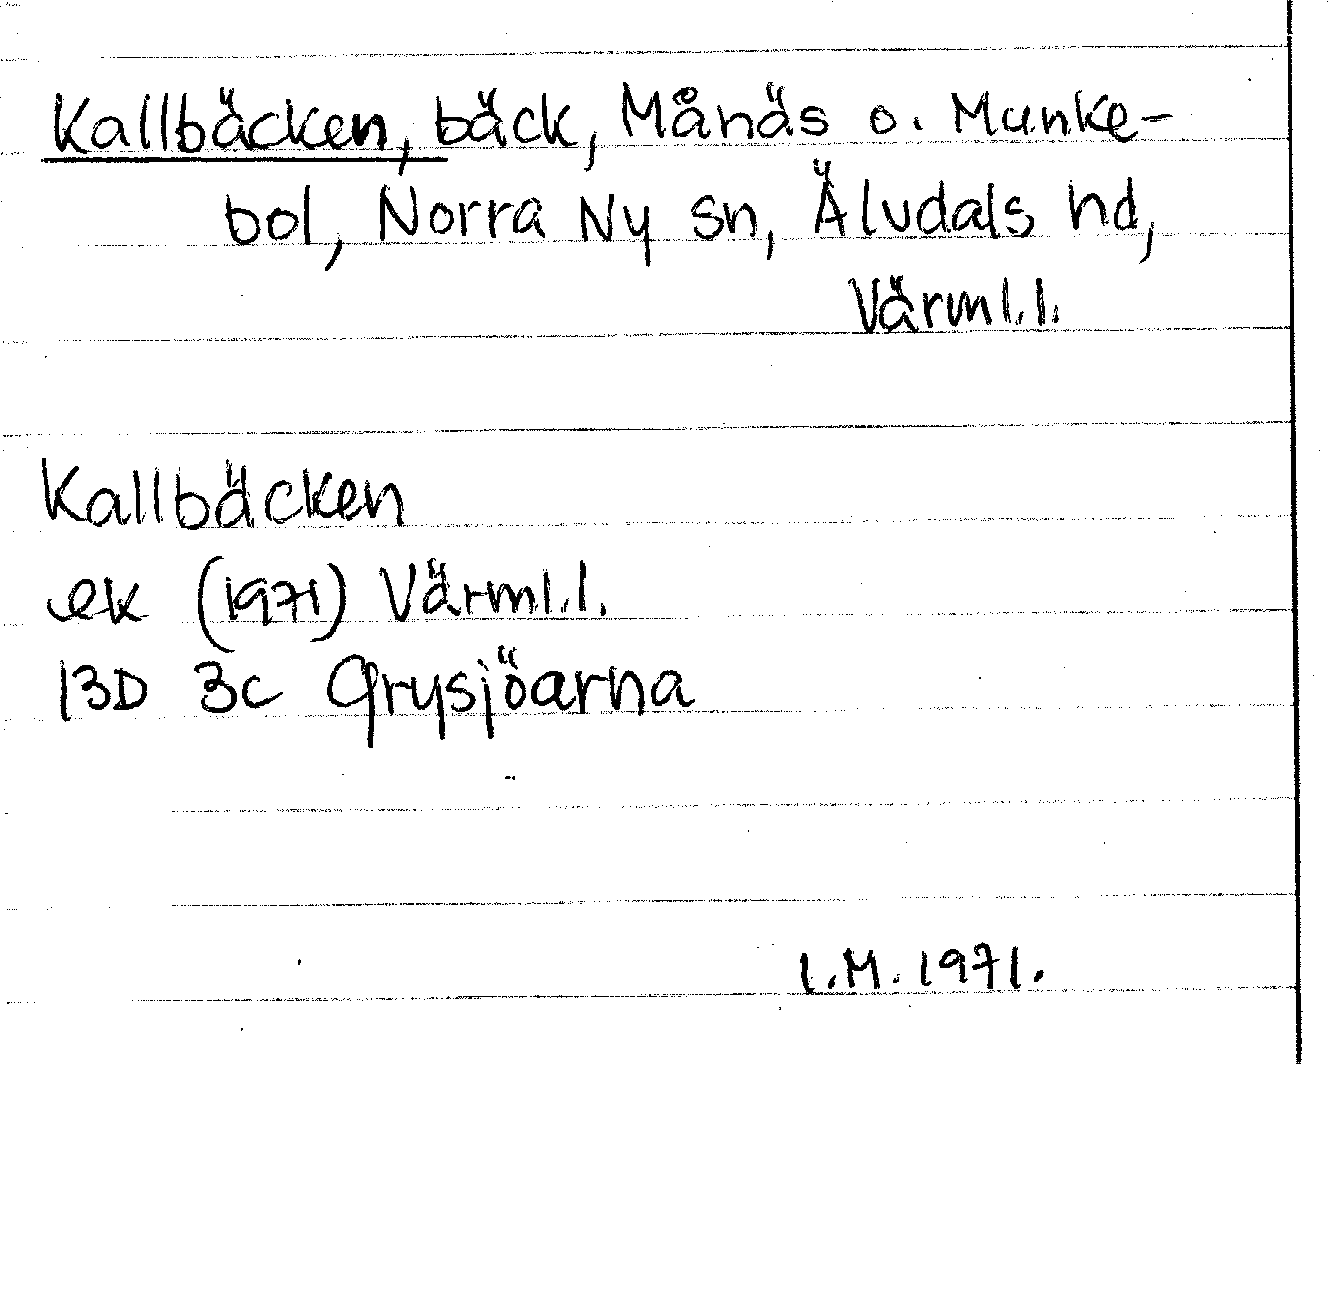 Kallbäcken, bäck, Månäs o. Munke-
bol, Norra Ny sn, Äludals hd,
Värml.l.
Kallbäcken
ek (1971) Värml.l.
13D 3c Grysjöarna
I.M. 1971.